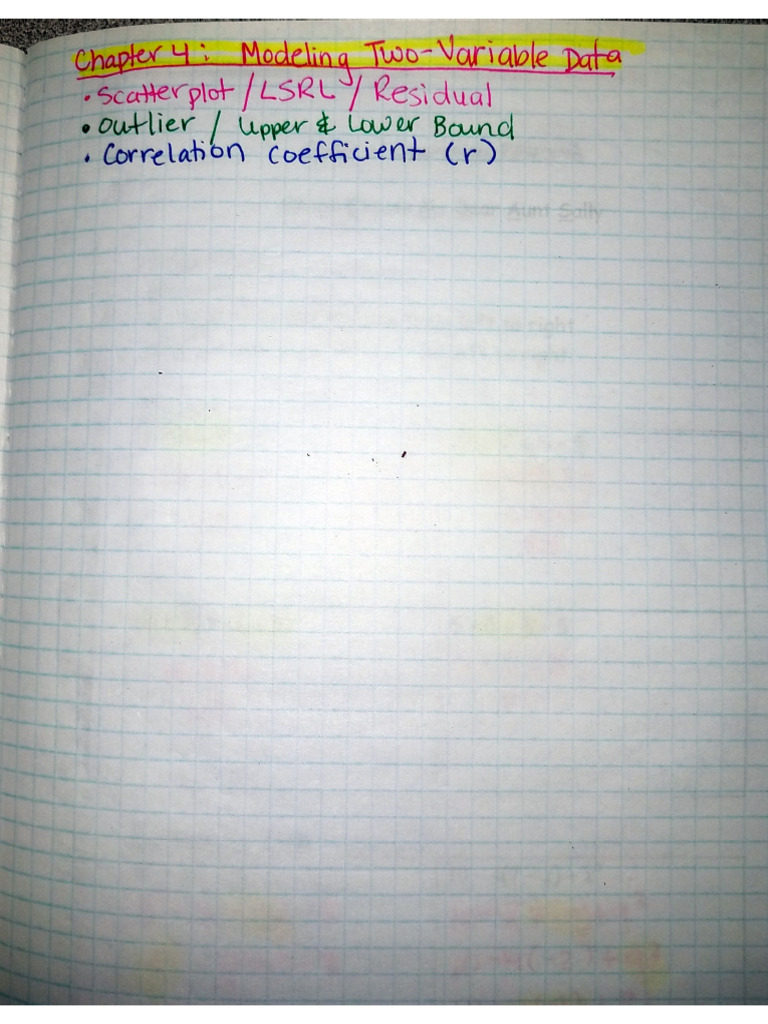 Chapter 4: Modeling Two-Variable Data
• Scatterplot / LSRL / Residual
• Outlier / Upper & Lower Bound
• Correlation Coefficient (r)
Aunt Sally